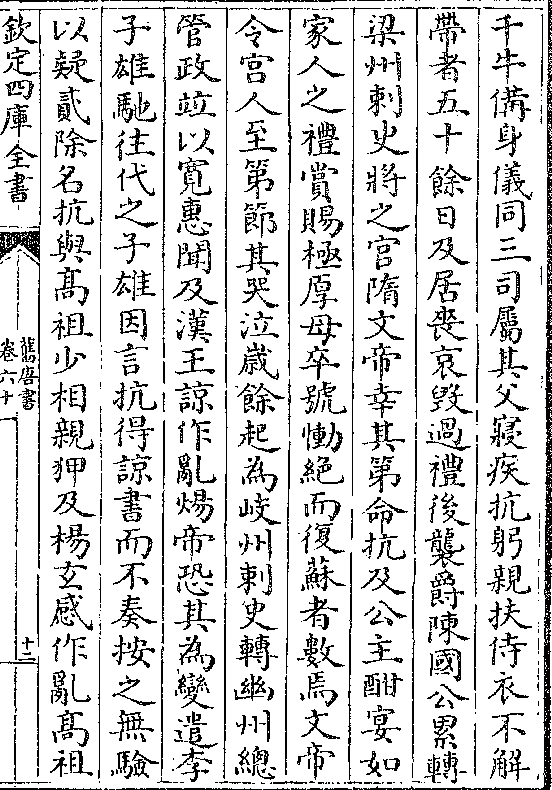 千牛備身儀同三司屬其父寢疾抗躬親扶侍衣不解
帶者五十餘日及居喪哀毀過禮後襲爵陳國公累轉
梁州刺史將之官隋文帝幸其第命抗及公主酣宴如
家人之禮賞賜極厚母卒號慟絶而復蘇者數焉文帝
令宮人至第節其哭泣歲餘起為岐州刺史轉幽州總
管政竝以寛惠聞及漢王諒作亂煬帝恐其為變遣李
子雄馳往代之子雄因言抗得諒書而不奏按之無驗
以疑貳除名抗與髙祖少相親狎及楊玄感作亂髙祖
欽定四庫全書
舊唐書
卷六十
十二